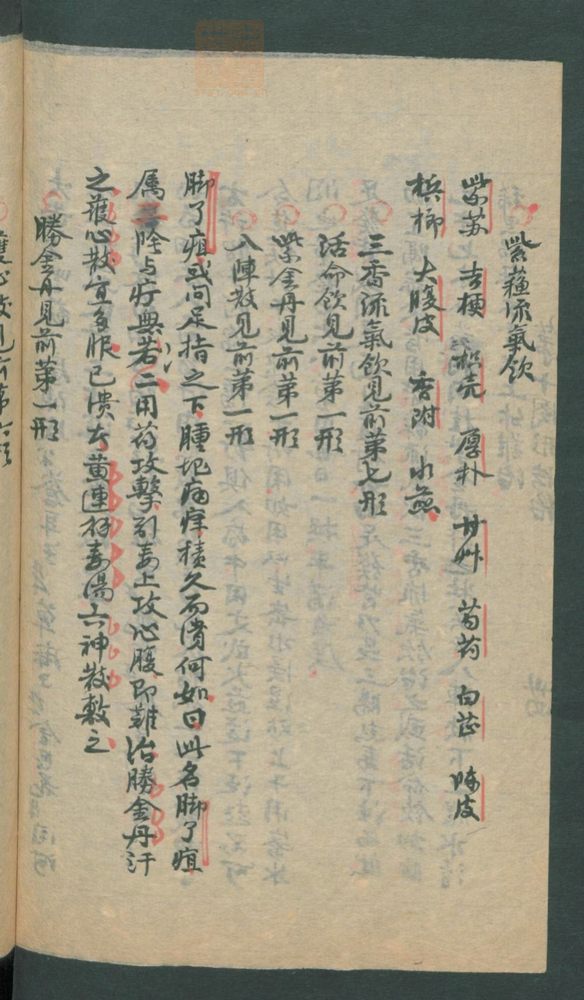 紫蘓流氣飲
紫苏 吉梗 枳壳 厚朴 甘艸 芍药 白芷 陳皮
梹榔 大腹皮 香附 木香
三香流氣飲見前第七形
活命飲見前第一形
紫金丹見前第一形
八陣散見前第一形
脚了疽或问足指之下腫圯痛痒積久而潰何如曰此名脚了疽
属三陰与疔無若二用药攻擊引毒上攻心腹即難治勝金丹汗
之護心散宜多服已潰者黄連解毒湯六神散敷之
勝金丹見前第一形
護心散見前第六形